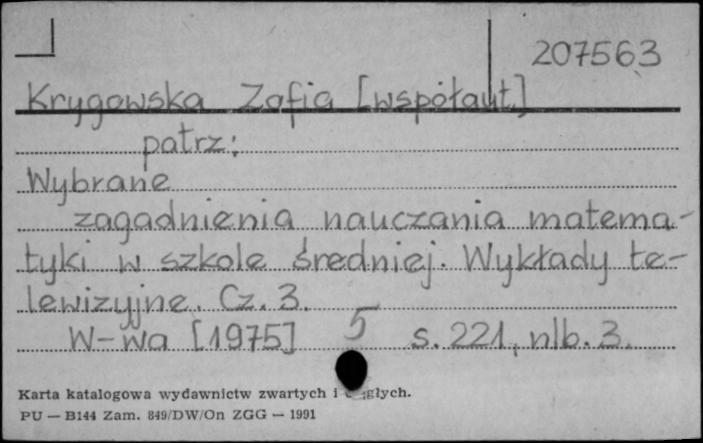 207563
Krygowska Zofia [współaut.]
patrz:
Wybrane
zagadnienia nauczania matema-
tyki w szkole średniej. Wykłady te-
lewizyjne. Cz. 3.
W-wa [1975] 5 s. 221, nlb. 3.
Karta katalogowa wydawnictw zwartych i
PU — B144 Zam. 849/DW/On ZGG — 1991